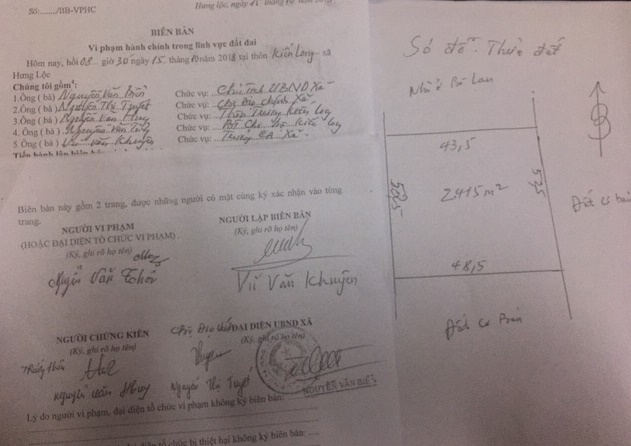 Số:......../BB-VPHC
Hưng lộc, ngày 15 tháng 10 năm 2018
BIÊN BẢN
Vi phạm hành chính trong lĩnh vực đất đai
Hôm nay, hồi 08.. giờ 30 ngày 15 tháng 10 năm 2018 tại thôn Kiến Long - xã
Hưng Lộc
Chúng tôi gồm⁴:
1.Ông ( bà ) Nguyễn Văn Biên Chức vụ: Chủ Tịch UBND Xã
2.Ông ( bà ) Nguyễn Thị Tuyết Chức vụ: Địa Chính Xã
3.Ông ( bà ) Nguyễn Văn Huy Chức vụ: Thôn Trưởng Kiến Long
4. Ông ( bà ) Chức vụ: Kiến Long
5. Ông ( bà ) Vũ Văn Khuyên Chức vụ: Trưởng CA Xã
Tiến hành lập biên bản
Biên bản này gồm 2 trang, được những người có mặt cùng ký xác nhận vào từng
trang.
NGƯỜI VI PHẠM
(HOẶC ĐẠI DIỆN TỔ CHỨC VI PHẠM)
(Ký, ghi rõ họ tên)
Nguyễn Văn
NGƯỜI LẬP BIÊN BẢN
(Ký, ghi rõ họ tên)
Vũ Văn Khuyên
NGƯỜI CHỨNG KIẾN
(Ký, ghi rõ họ tên)
Nguyễn Văn Huy
Nguyễn Thị Tuyết
ĐẠI DIỆN UBND XÃ
(Ký, ghi rõ họ tên)
NGUYỄN VĂN BIÊN
Lý do người vi phạm, đại diện tổ chức vi phạm không ký biên bản:
đại diện tổ chức bị thiệt hại không ký biên bản: ....
Sơ đồ Thửa đất
Nhà Bà Lan
43,5
52,5
2415 m²
52,5
48,5
Đất Cơ Bản
Đất Cơ Bản